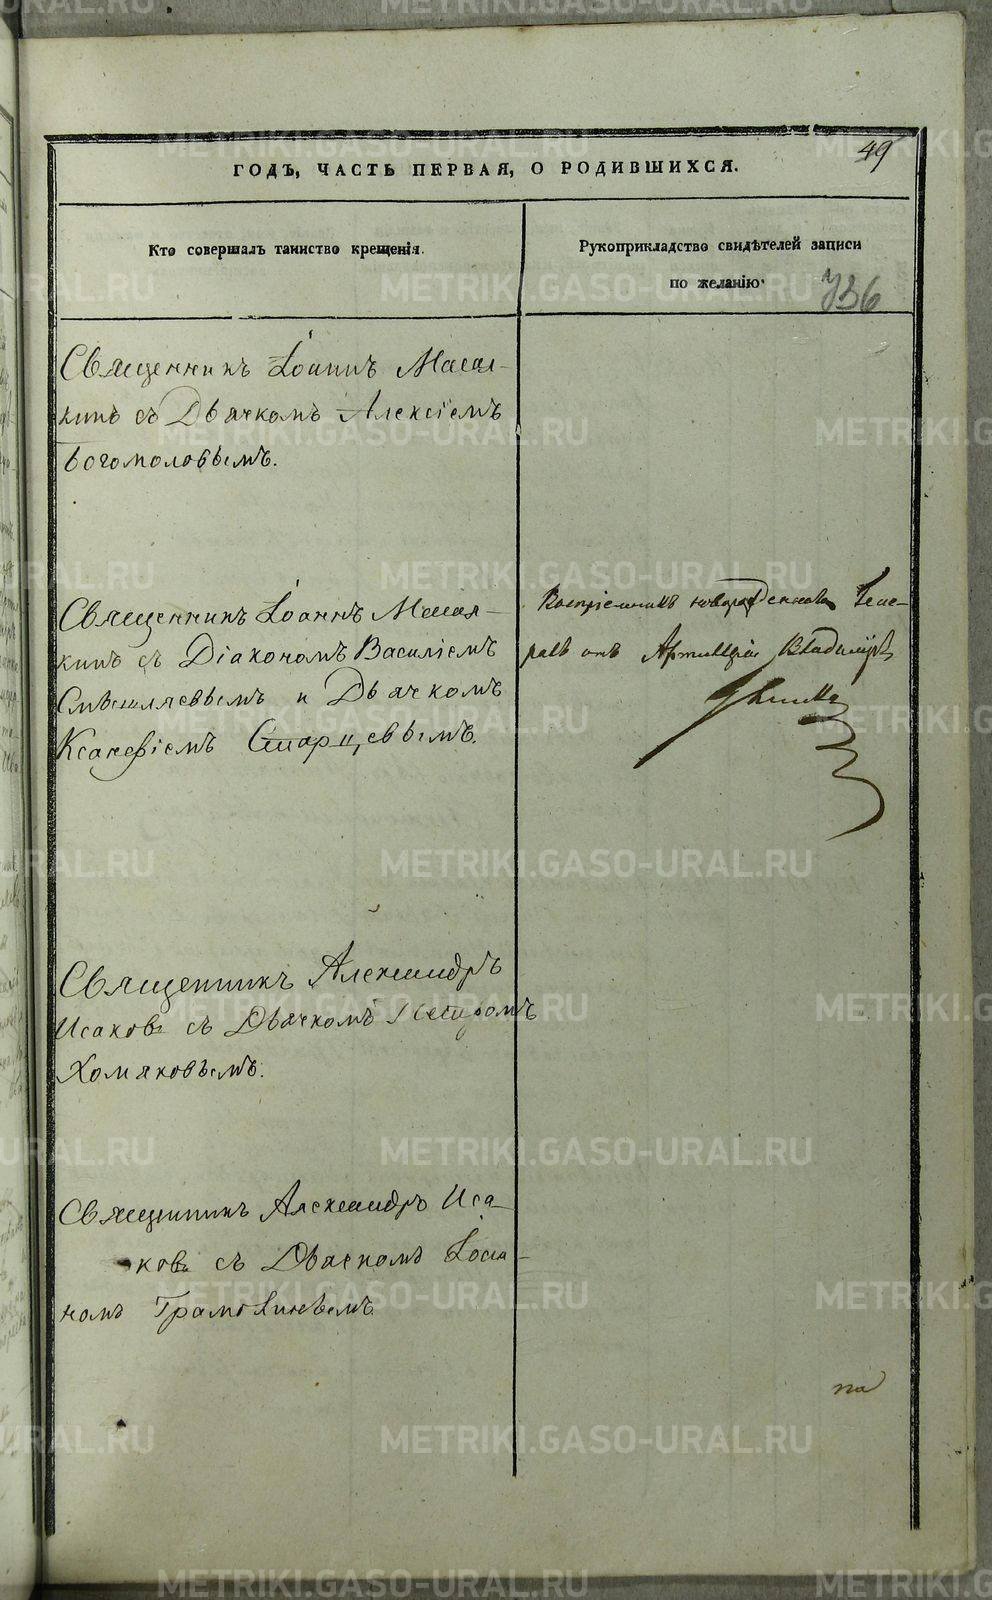 49
ГОДЪ, ЧАСТЬ ПЕРВАЯ, О РОДИВШИХСЯ.
Кто совершалъ таинство крещенія.
Рукоприкладство свидѣтелей записи
по желанію.
736
Священникъ Іоаннъ Масал-
кинъ съ Дьячкомъ Алексіемъ
Богомоловымъ.
Священникъ Іоаннъ Масал-
кинъ съ Діакономъ Василіемъ
Смышляевымъ и Дьячкомъ
Ксанѳіемъ Старцевымъ.
Воспріемникъ новорожденной Гене-
ралъ отъ Артиллеріи Владиміръ
Глинка
Священникъ Александръ
Исаковъ съ Дьячкомъ Петромъ
Хомяковымъ.
Священникъ Александръ Иса-
ковъ съ Дьячкомъ
Грамолинымъ
на
METRIKI.GASO-URAL.RU